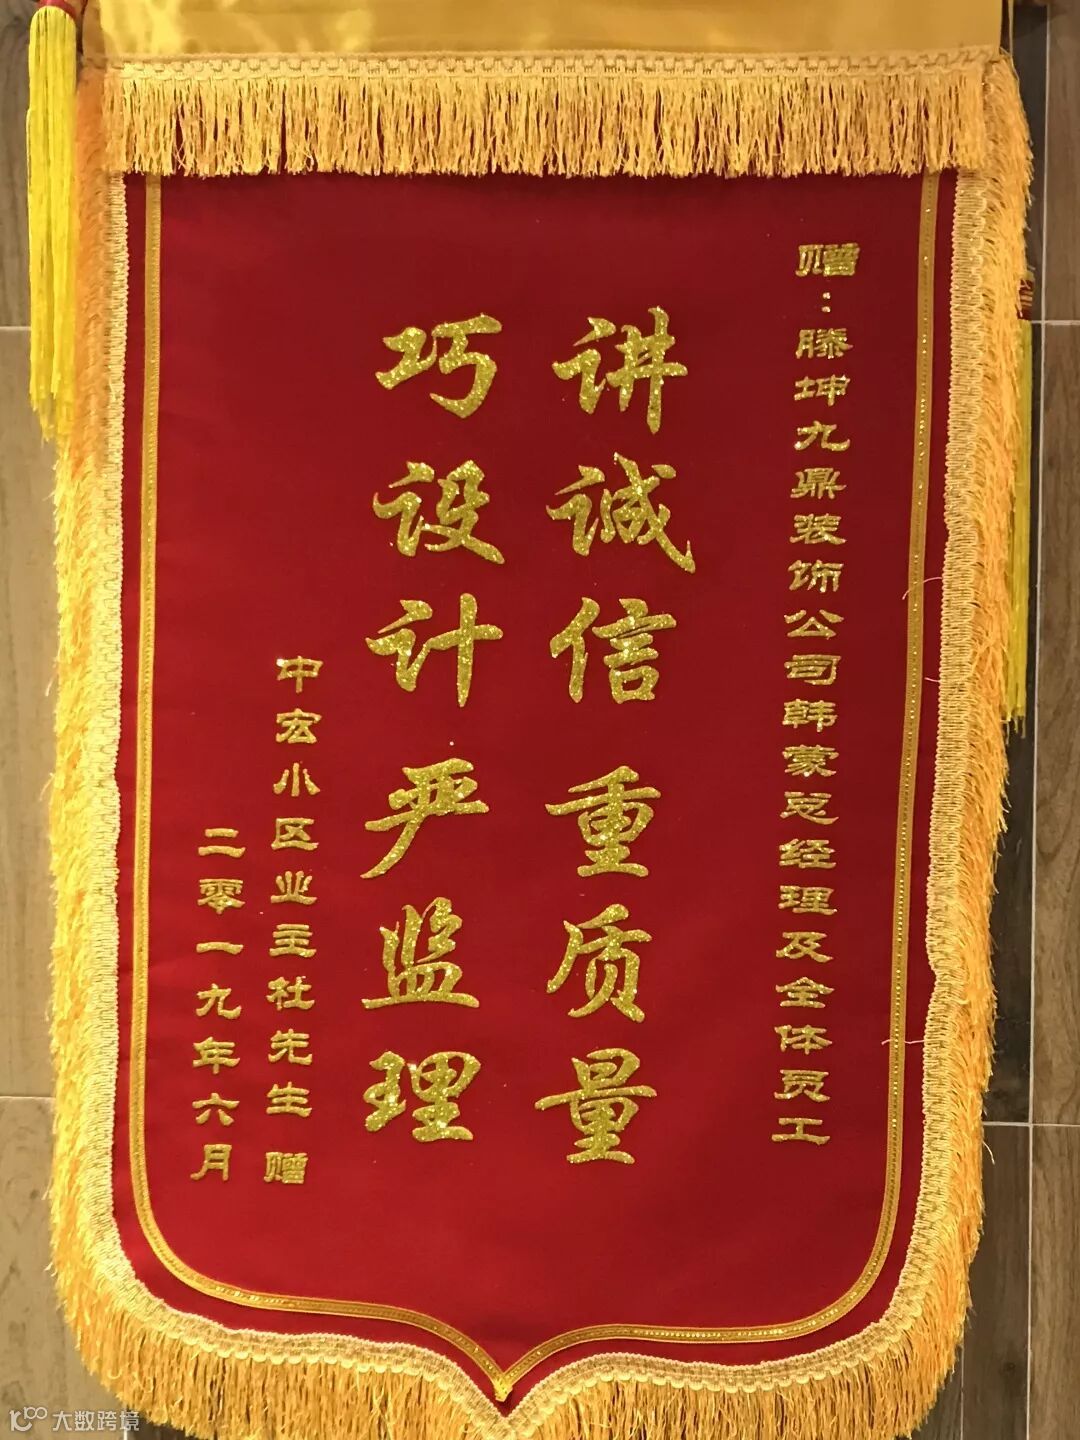 赠：滕坤九鼎装饰公司韩蒙总经理及全体员工
讲诚信重质量
巧设计严监理
中宏小区业主社先生 赠
二零一九年六月
大数跨境